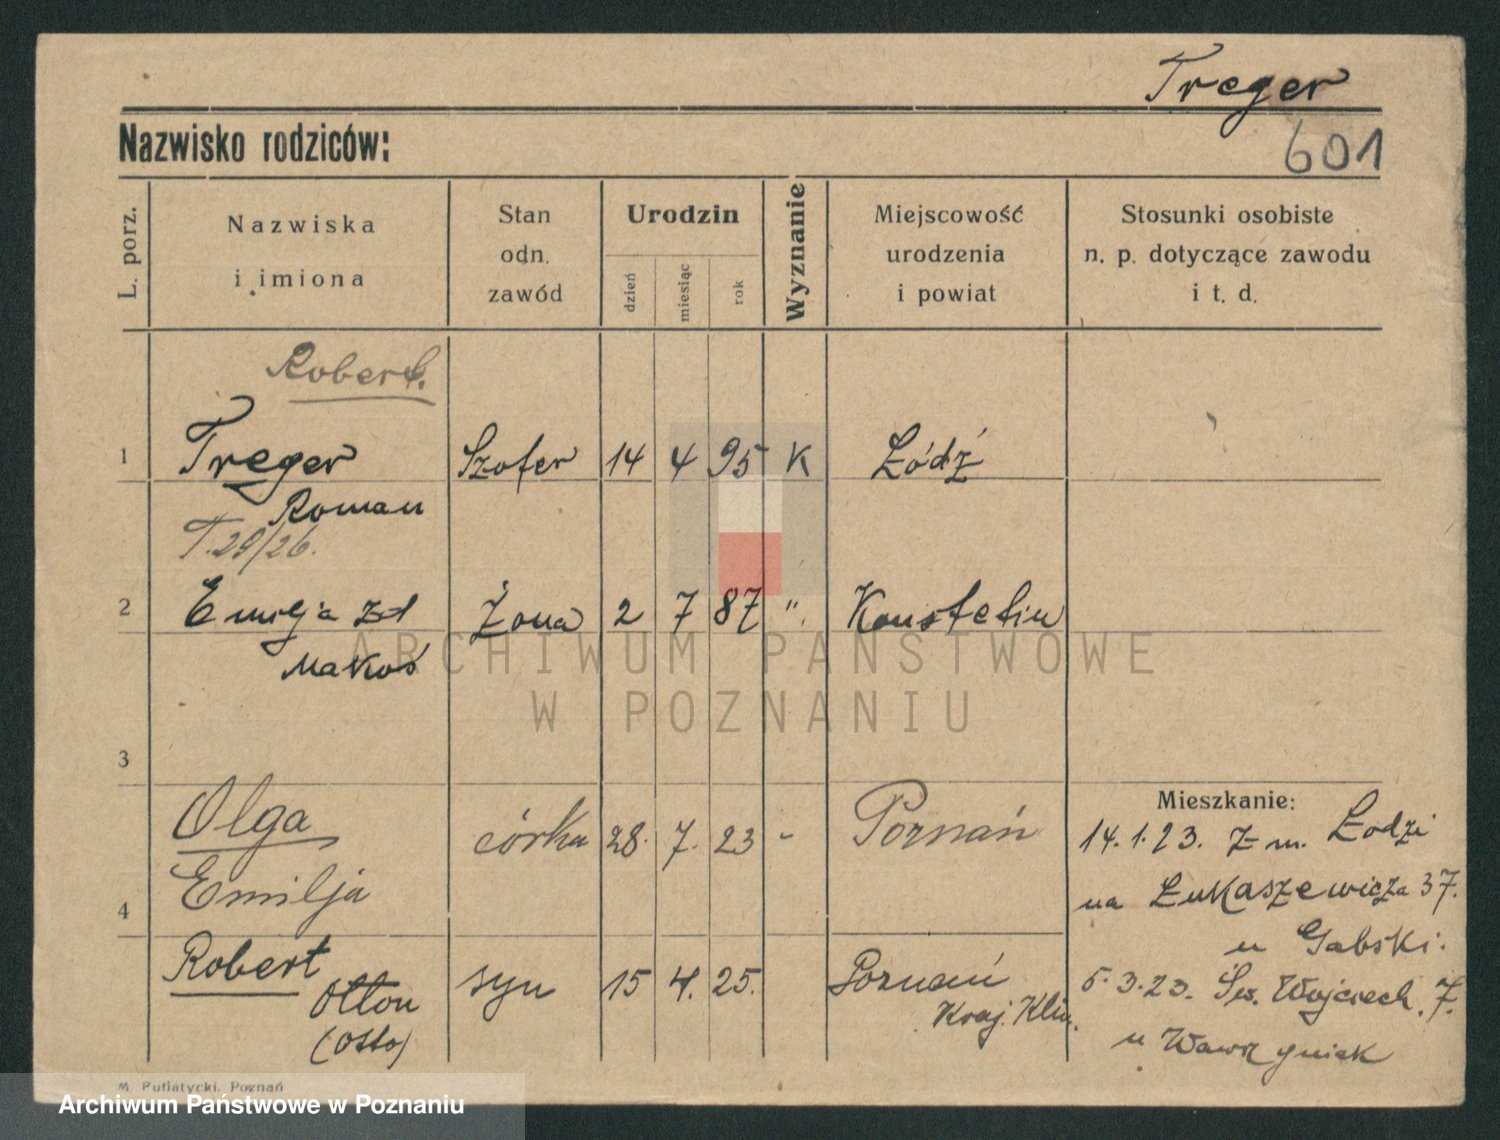 Treger
601
Nazwisko rodziców:
L. porz.
Nazwiska
i imiona
Stan
odn.
zawód
Urodzin
dzień
miesiąc
rok
Wyznanie
Miejscowość
urodzenia
i powiat
Stosunki osobiste
n. p. dotyczące zawodu
i t. d.
Robert.
1 Treger Szofer 14 4 95 K Łódź
Roman
T.29/26.
2 Emilja zd Żona 2 7 87 ".
Makoś
ARCHIWUM PAŃSTWOWE
W POZNANIU
3
Olga córka 28. 7. 23 - Poznań
Emilja
4
Robert syn 15 4. 25. Poznań
Otton Kraj. Klin.
(Otto)
Mieszkanie:
14.1.23. Z m. Łodzi
na Łukaszewicza 37.
u Gabski.
5.3.23. Św. Wojciech 7.
u Wawrzyniak
M. Putiatycki, Poznań
Archiwum Państwowe w Poznaniu